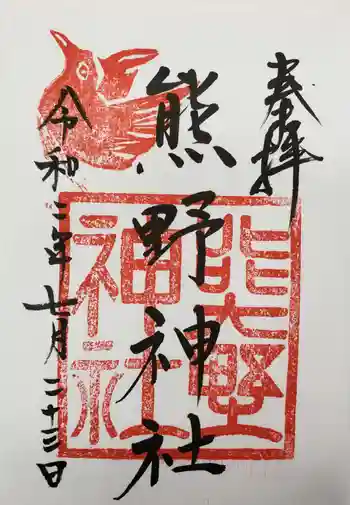 奉拝
熊野神社
令和二年七月二十三日
熊野
神社